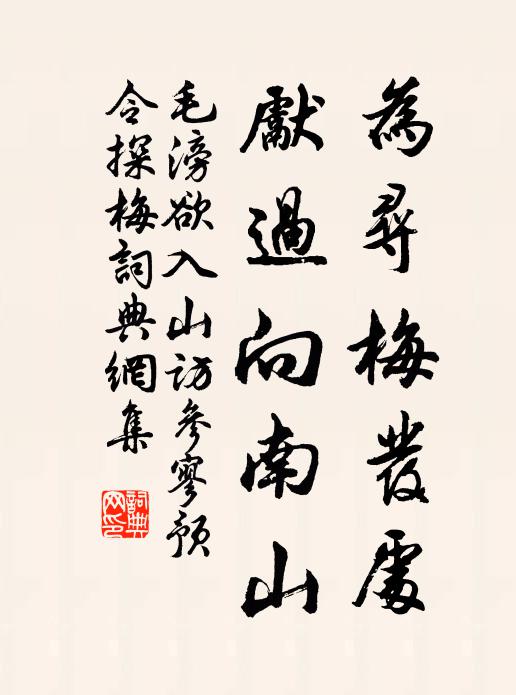 為尋梅發處
獻過向南山
毛滂欲入山訪參寥預
令探梅詞典網集
詞典
网印